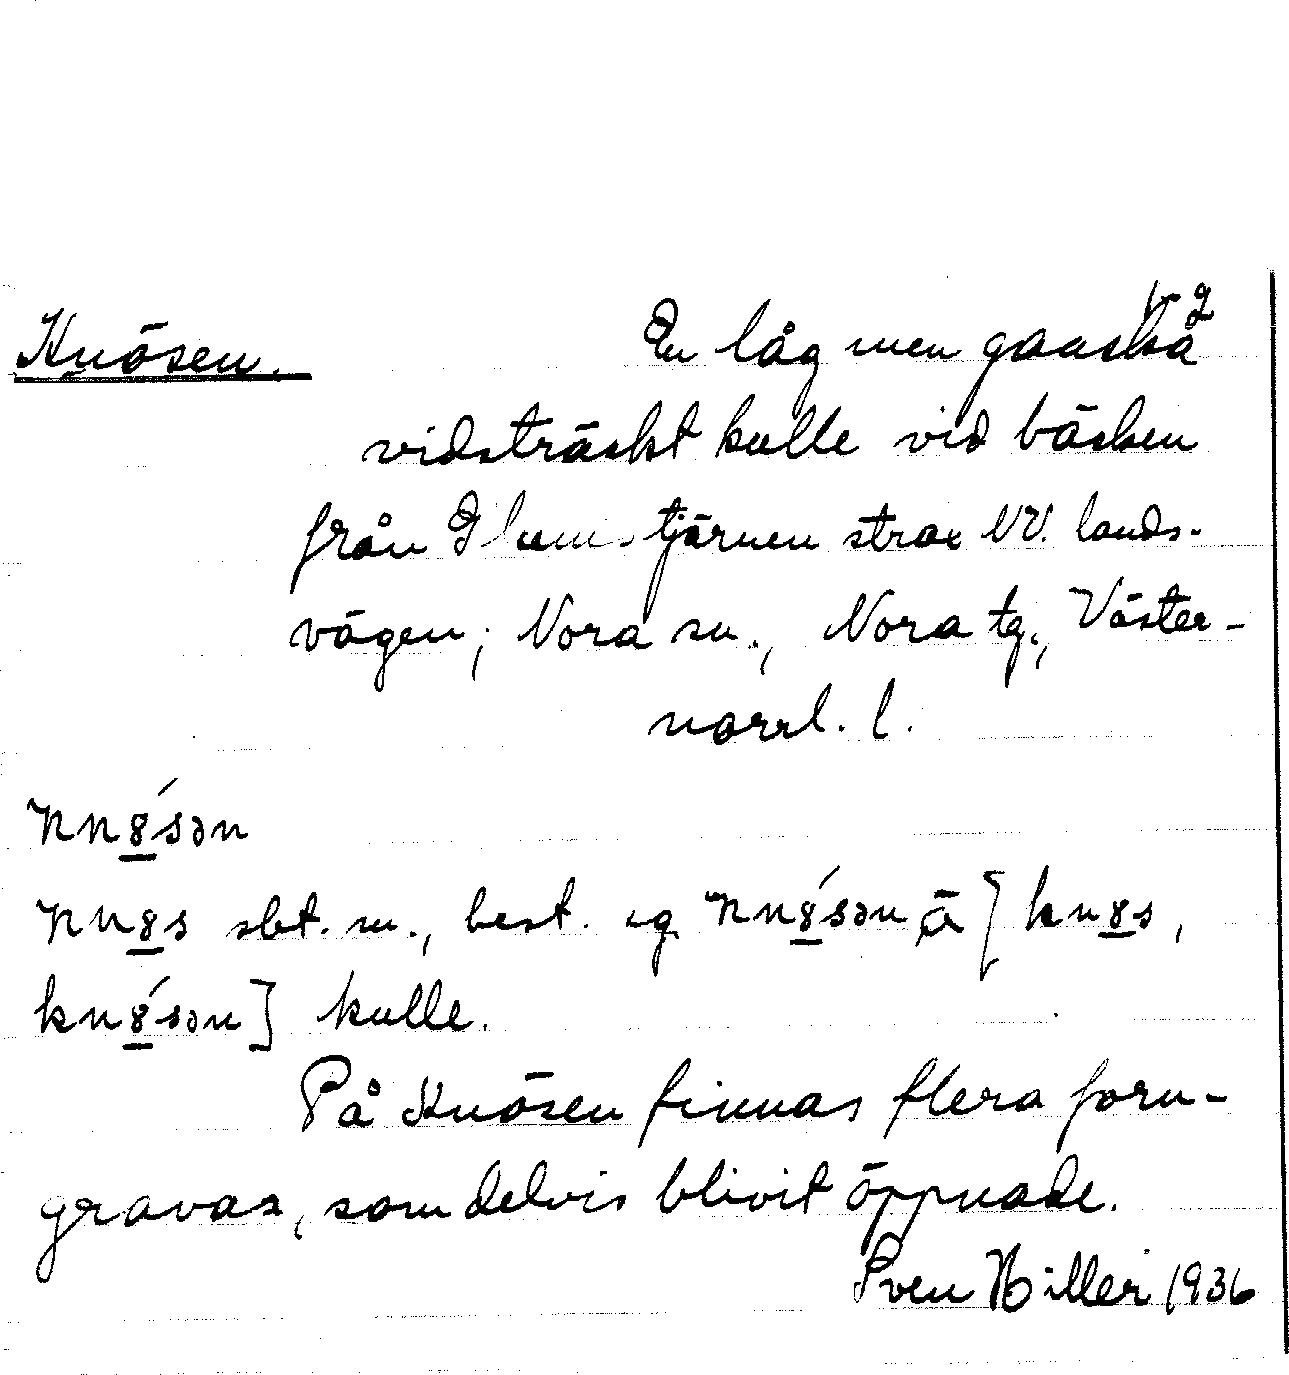 Knösen. En låg men ganska
vidsträckt kulle vid bäcken
från tjärnen strax NV. lands-
vägen; Nora sn., Nora tg., Väster-
norrl. l.
sbt. m., best. sg.
kulle.
På Knösen finnas flera forn-
gravar, som delvis blivit öppnade.
Sven Hiller 1936